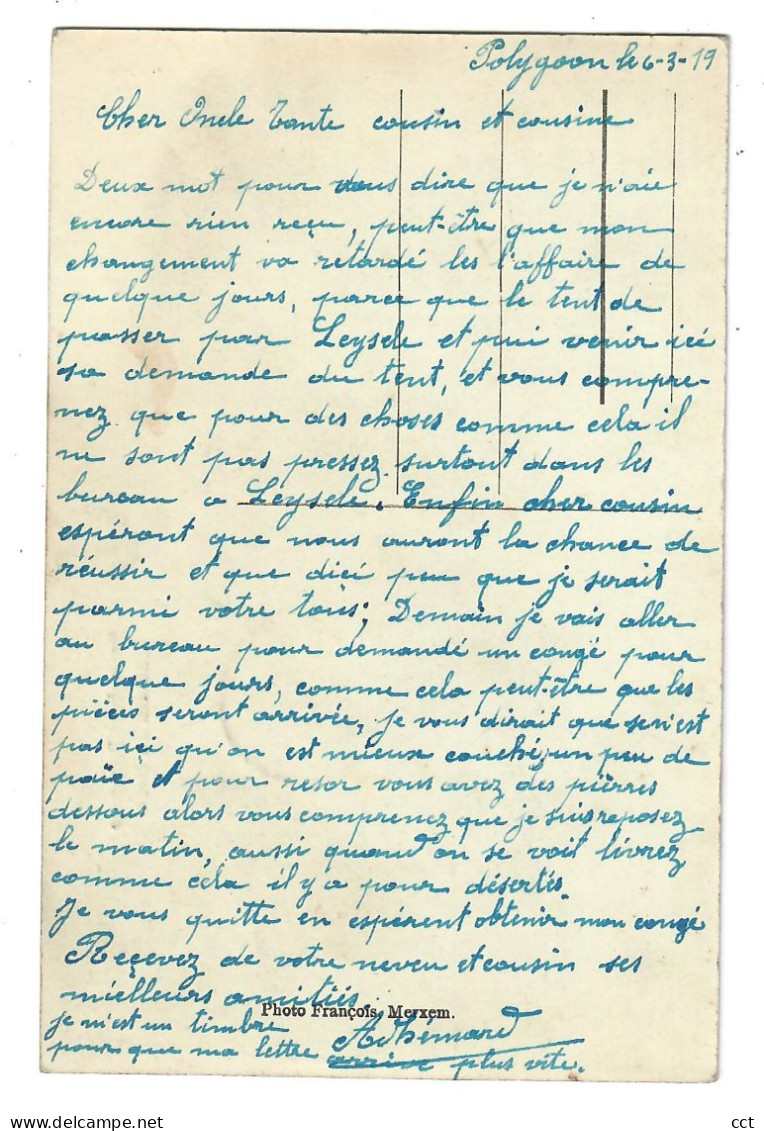 Polygoon le 6-3-19
Cher Oncle Tante cousin et cousine
Deux mot pour vous dire que je n'aie
encore rien reçu, peut-être que mon
changement va retardé les l'affaire de
quelque jours, parce que le tent de
passer par Leysele et pui venir ici
sa demande du tent, et vous compre-
nez que pour des choses comme cela il
ne sont pas pressez surtout dans les
bureau a Leysele. Enfin cher cousin
espéront que nous auront la chance de
réussir et que dici peu que je serait
parmi votre tous; Demain je vais aller
au bureau pour demandé un congé pour
quelque jours, comme cela peut-être que les
pièces seront arrivée, je vous dirait que se n'est
pas ici qu'on est mieux couché, un peu de
païe et pour resor vous avez des pierres
dessous alors vous comprenez que je suis reposez
le matin, aussi quand on se voit livrez
comme cela il y a pour désertés.
Je vous quitte en espérent obtenir mon congé
Reçevez de votre neveu et cousin ses
mielleurs amitiés.
Photo François, Merxem.
je m'est un timbre Adhémard
pour que ma lettre arrive plus vite.
cct